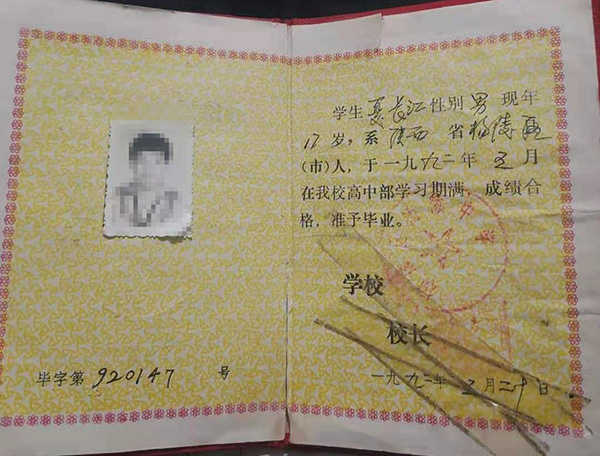 毕字第 920147 号
学生 夏长江 性别 男 现年
17 岁，系 陕西 省 杨陵 区
(市)人，于一九九二年 五 月
在我校高中部学习期满，成绩合
格，准予毕业。
学校
校长
一九九二年 五 月 二十 日